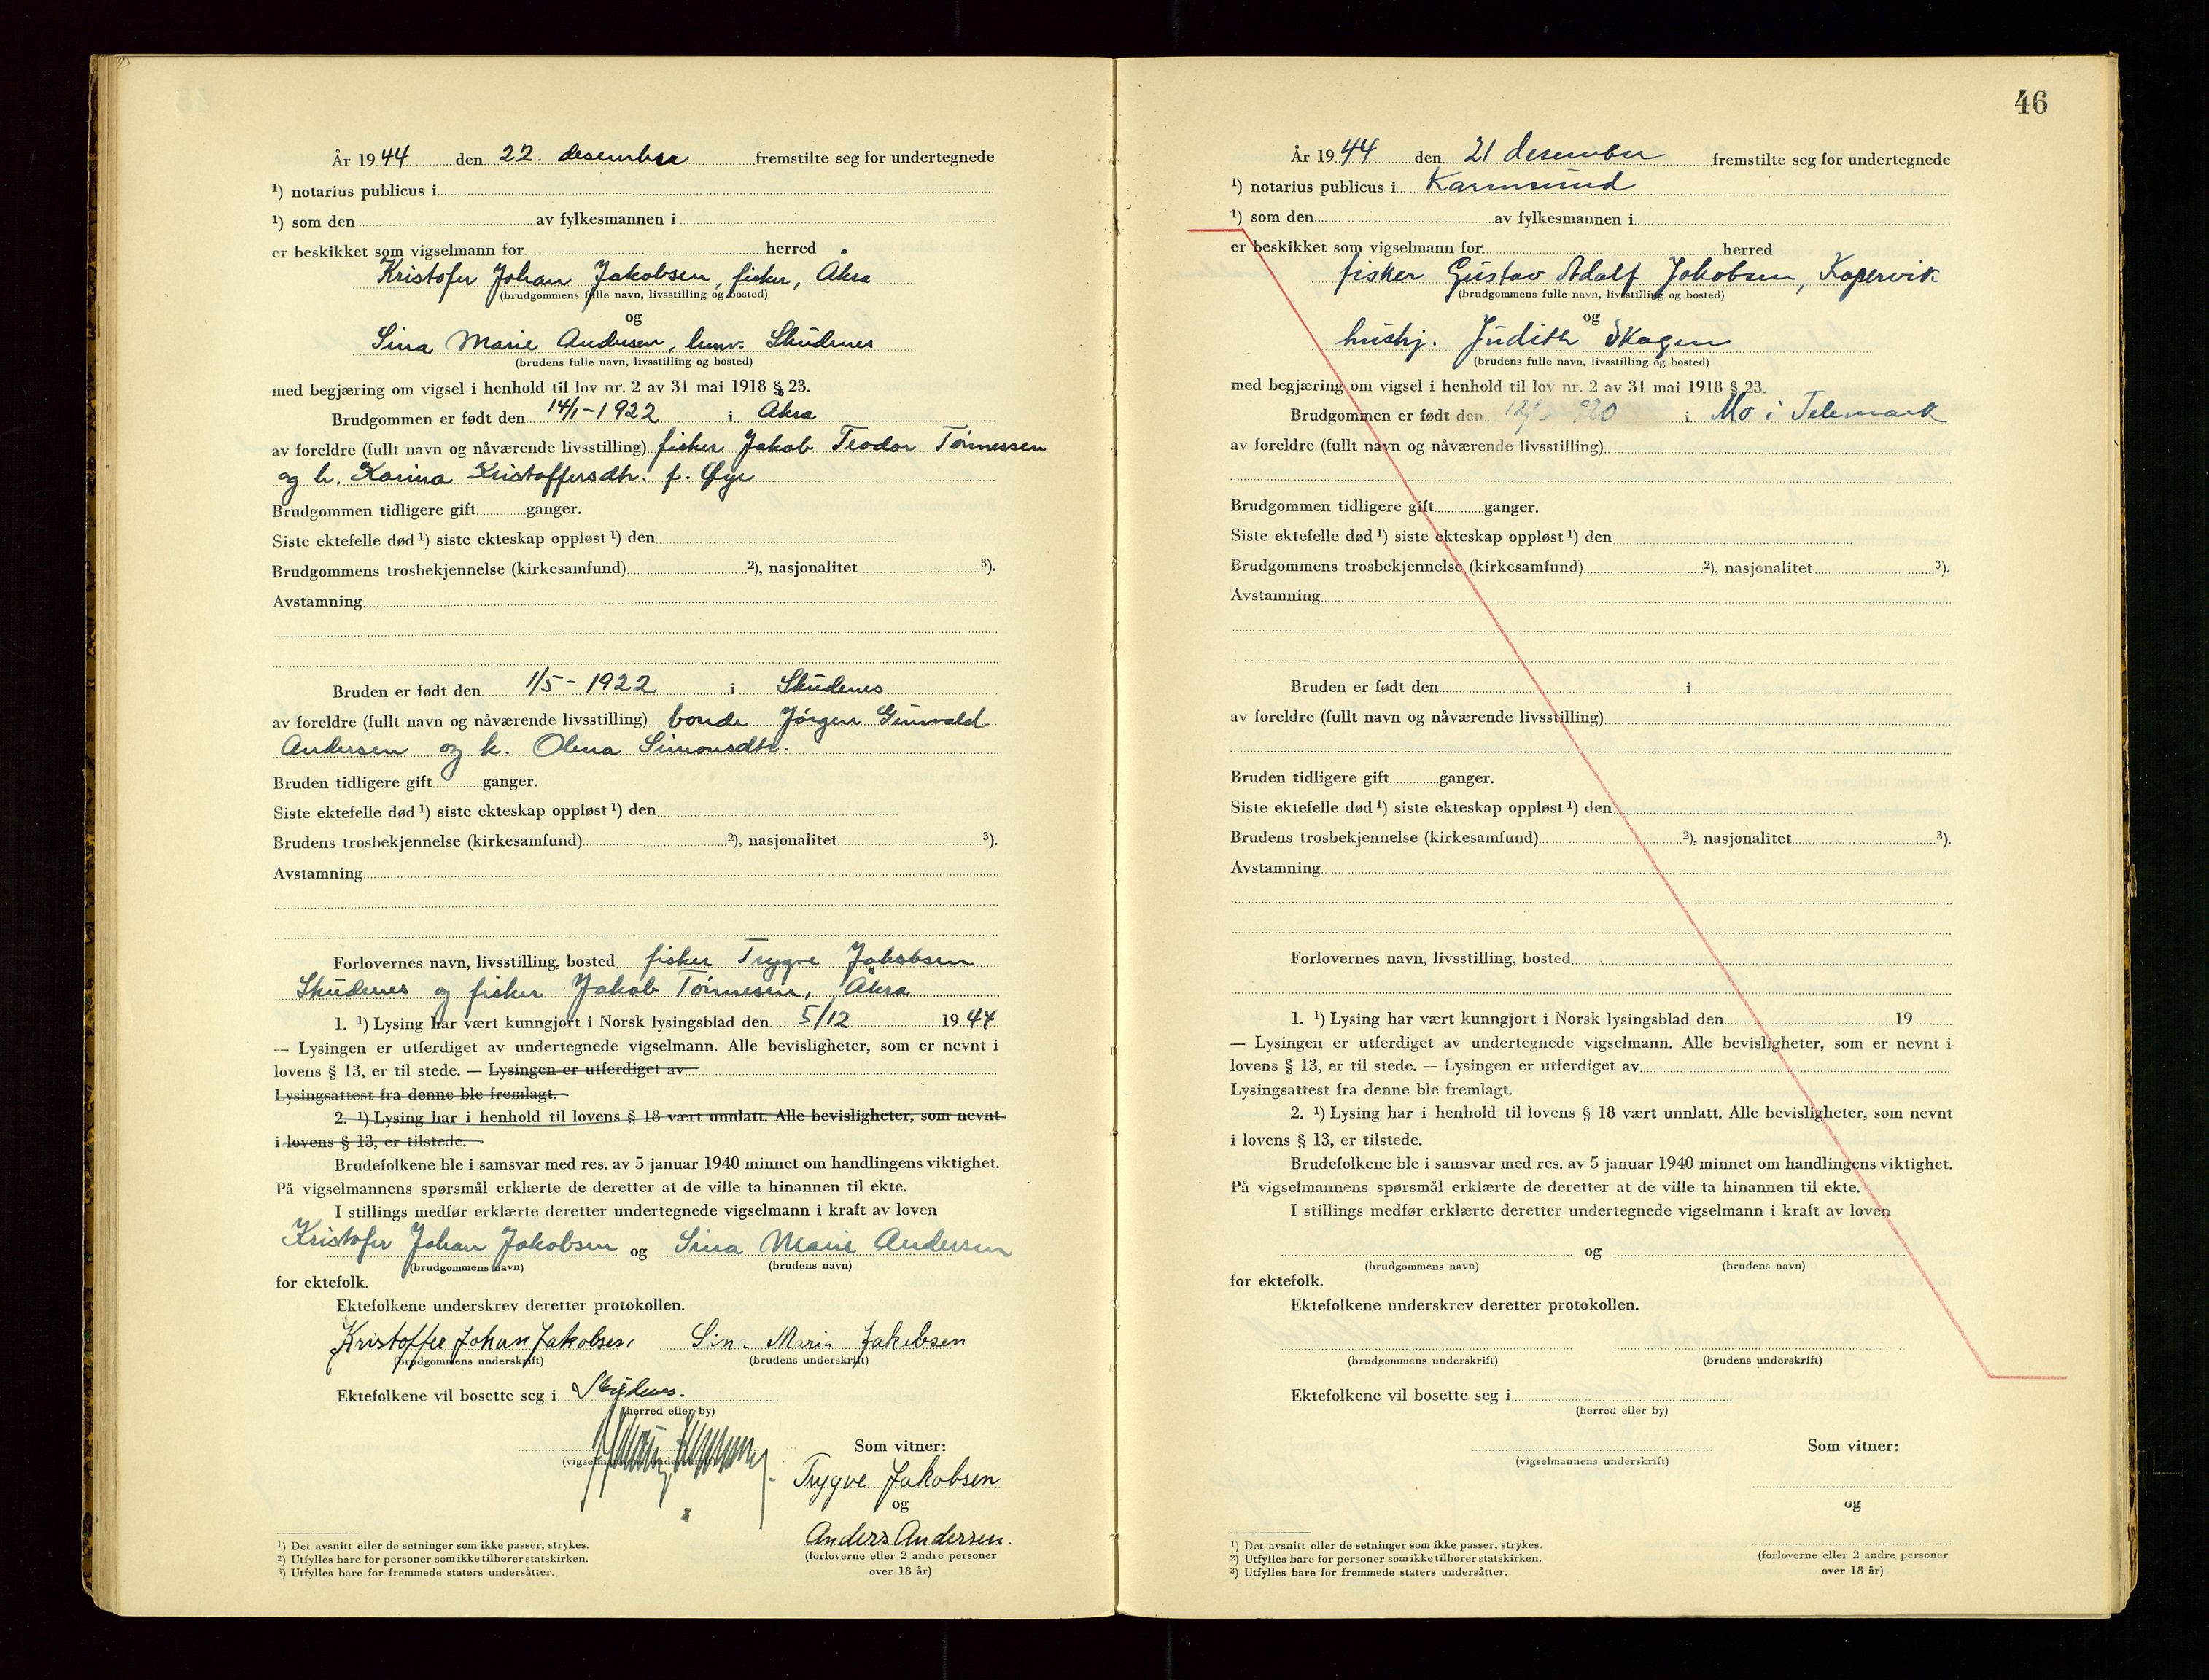 År 1944 den 22. desember fremstilte seg for undertegnede
¹) notarius publicus i
¹) som den av fylkesmannen i
er beskikket som vigselmann for herred
Kristofer Johan Jakobsen, fisker, Åkra
(brudgommens fulle navn, livsstilling og bosted)
og
Sina Marie Andersen, hmv. Skudenes
(brudens fulle navn, livsstilling og bosted)
med begjæring om vigsel i henhold til lov nr. 2 av 31 mai 1918 § 23.
Brudgommen er født den 14/1-1922 i Åkra
av foreldre (fullt navn og nåværende livsstilling) fisker Jakob Teodor Tønnessen
og h. Karina Kristoffersdtr. f. Øyr
Brudgommen tidligere gift ganger.
Siste ektefelle død ¹) siste ekteskap oppløst ¹) den
Brudgommens trosbekjennelse (kirkesamfund) ²), nasjonalitet ³).
Avstamning
Bruden er født den 1/5-1922 i Skudenes
av foreldre (fullt navn og nåværende livsstilling) bonde Jørgen Gunvald
Andersen og h. Olena Simonsdtr.
Bruden tidligere gift ganger.
Siste ektefelle død ¹) siste ekteskap oppløst ¹) den
Brudens trosbekjennelse (kirkesamfund) ²), nasjonalitet ³).
Avstamning
Forlovernes navn, livsstilling, bosted fisker Trygve Jakobsen
Skudenes og fisker Jakob Tønnesen, Åkra
1. ¹) Lysing har vært kunngjort i Norsk lysingsblad den 5/12 1944
— Lysingen er utferdiget av undertegnede vigselmann. Alle bevisligheter, som er nevnt i
lovens § 13, er til stede. — Lysingen er utferdiget av
Lysingsattest fra denne ble fremlagt.
2. ¹) Lysing har i henhold til lovens § 18 vært unnlatt. Alle bevisligheter, som nevnt
i lovens § 13, er tilstede.
Brudefolkene ble i samsvar med res. av 5 januar 1940 minnet om handlingens viktighet.
På vigselmannens spørsmål erklærte de deretter at de ville ta hinannen til ekte.
I stillings medfør erklærte deretter undertegnede vigselmann i kraft av loven
Kristofer Johan Jakobsen og Sina Marie Andersen
(brudgommens navn) (brudens navn)
for ektefolk.
Ektefolkene underskrev deretter protokollen.
Kristoffer Johan Jakobsen Sina Marie Jakobsen
(brudgommens underskrift) (brudens underskrift)
Ektefolkene vil bosette seg i Skudenes.
(herred eller by)
Som vitner:
(vigselmannens underskrift)
Trygve Jakobsen
og
Anders Andersen.
(forloverne eller 2 andre personer
over 18 år)
¹) Det avsnitt eller de setninger som ikke passer, strykes.
²) Utfylles bare for personer som ikke tilhører statskirken.
³) Utfylles bare for fremmede staters undersåtter.
46
År 1944 den 21 desember fremstilte seg for undertegnede
¹) notarius publicus i Karmsund
¹) som den av fylkesmannen i
er beskikket som vigselmann for herred
fisker Gustav Adolf Jakobsen, Kopervik
(brudgommens fulle navn, livsstilling og bosted)
og
hushj. Judith Skogen
(brudens fulle navn, livsstilling og bosted)
med begjæring om vigsel i henhold til lov nr. 2 av 31 mai 1918 § 23.
Brudgommen er født den 920 i Mo i Telemark
av foreldre (fullt navn og nåværende livsstilling)
Brudgommen tidligere gift ganger.
Siste ektefelle død ¹) siste ekteskap oppløst ¹) den
Brudgommens trosbekjennelse (kirkesamfund) ²), nasjonalitet ³).
Avstamning
Bruden er født den i
av foreldre (fullt navn og nåværende livsstilling)
Bruden tidligere gift ganger.
Siste ektefelle død ¹) siste ekteskap oppløst ¹) den
Brudens trosbekjennelse (kirkesamfund) ²), nasjonalitet ³).
Avstamning
Forlovernes navn, livsstilling, bosted
1. ¹) Lysing har vært kunngjort i Norsk lysingsblad den 19
— Lysingen er utferdiget av undertegnede vigselmann. Alle bevisligheter, som er nevnt i
lovens § 13, er til stede. — Lysingen er utferdiget av
Lysingsattest fra denne ble fremlagt.
2. ¹) Lysing har i henhold til lovens § 18 vært unnlatt. Alle bevisligheter, som nevnt
i lovens § 13, er tilstede.
Brudefolkene ble i samsvar med res. av 5 januar 1940 minnet om handlingens viktighet.
På vigselmannens spørsmål erklærte de deretter at de ville ta hinannen til ekte.
I stillings medfør erklærte deretter undertegnede vigselmann i kraft av loven
og
(brudgommens navn) (brudens navn)
for ektefolk.
Ektefolkene underskrev deretter protokollen.
(brudgommens underskrift) (brudens underskrift)
Ektefolkene vil bosette seg i
(herred eller by)
Som vitner:
(vigselmannens underskrift)
og
(forloverne eller 2 andre personer
over 18 år)
¹) Det avsnitt eller de setninger som ikke passer, strykes.
²) Utfylles bare for personer som ikke tilhører statskirken.
³) Utfylles bare for fremmede staters undersåtter.